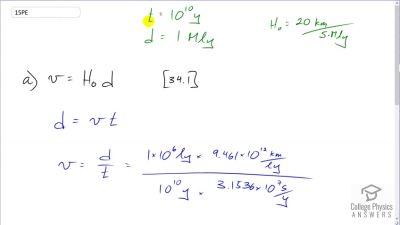 15PE
t = 10¹⁰ y
d = 1 Mly
H₀ = 20 km / s·Mly
a) v = H₀ d [34.1]
d = v t
v = d / t = 1×10⁶ ly × 9.461×10¹² km/ly / 10¹⁰ y × 3.1536×10⁷ s/y
College Physics
ANSWERS